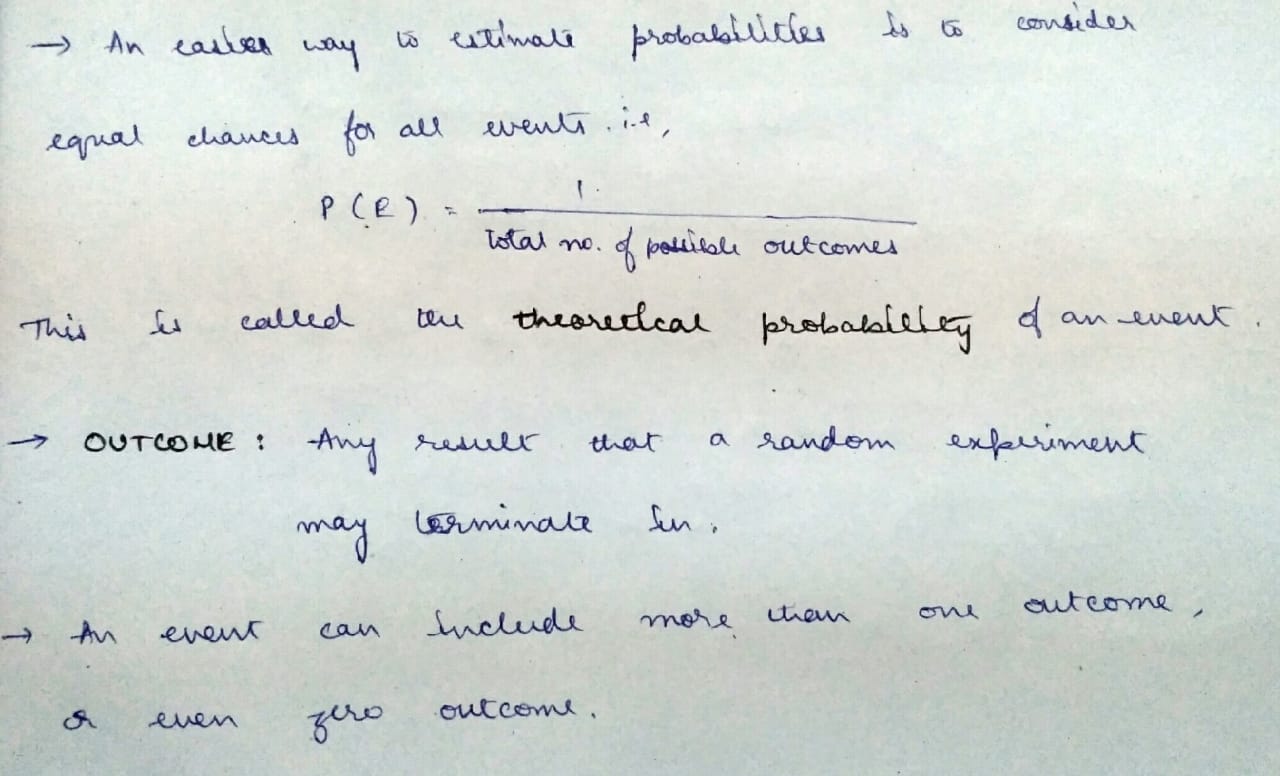 → An easier way to estimate probabilities is to consider
equal chances for all events. i.e,
P(E) = 1
Total no. of possible outcomes
This is called the theoretical probability of an event.
→ OUTCOME : Any result that a random experiment
may terminate in.
→ An event can include more than one outcome,
or even zero outcome.